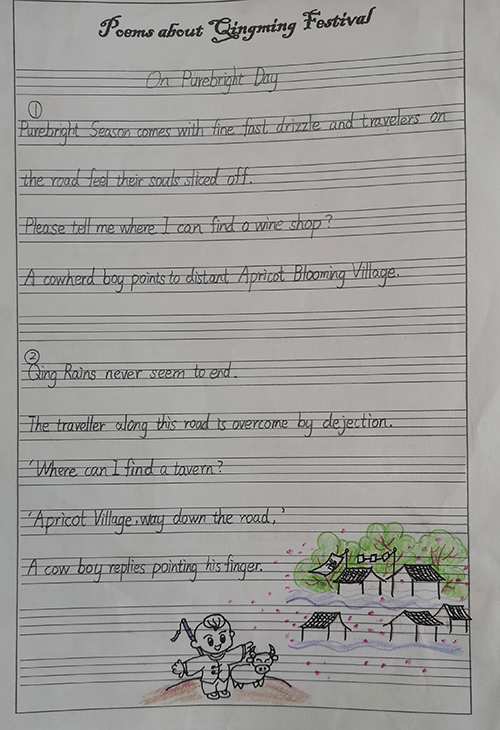 Poems about Qingming Festival
On Purebright Day
①
Purebright Season comes with fine fast drizzle and travelers on
the road feel their souls sliced off.
Please tell me where I can find a wine shop?
A cowherd boy points to distant Apricot Blooming Village.
②
Qing Rains never seem to end.
The traveller along this road is overcome by dejection.
'Where can I find a tavern?
'Apricot Village, way down the road,'
A cow boy replies pointing his finger.